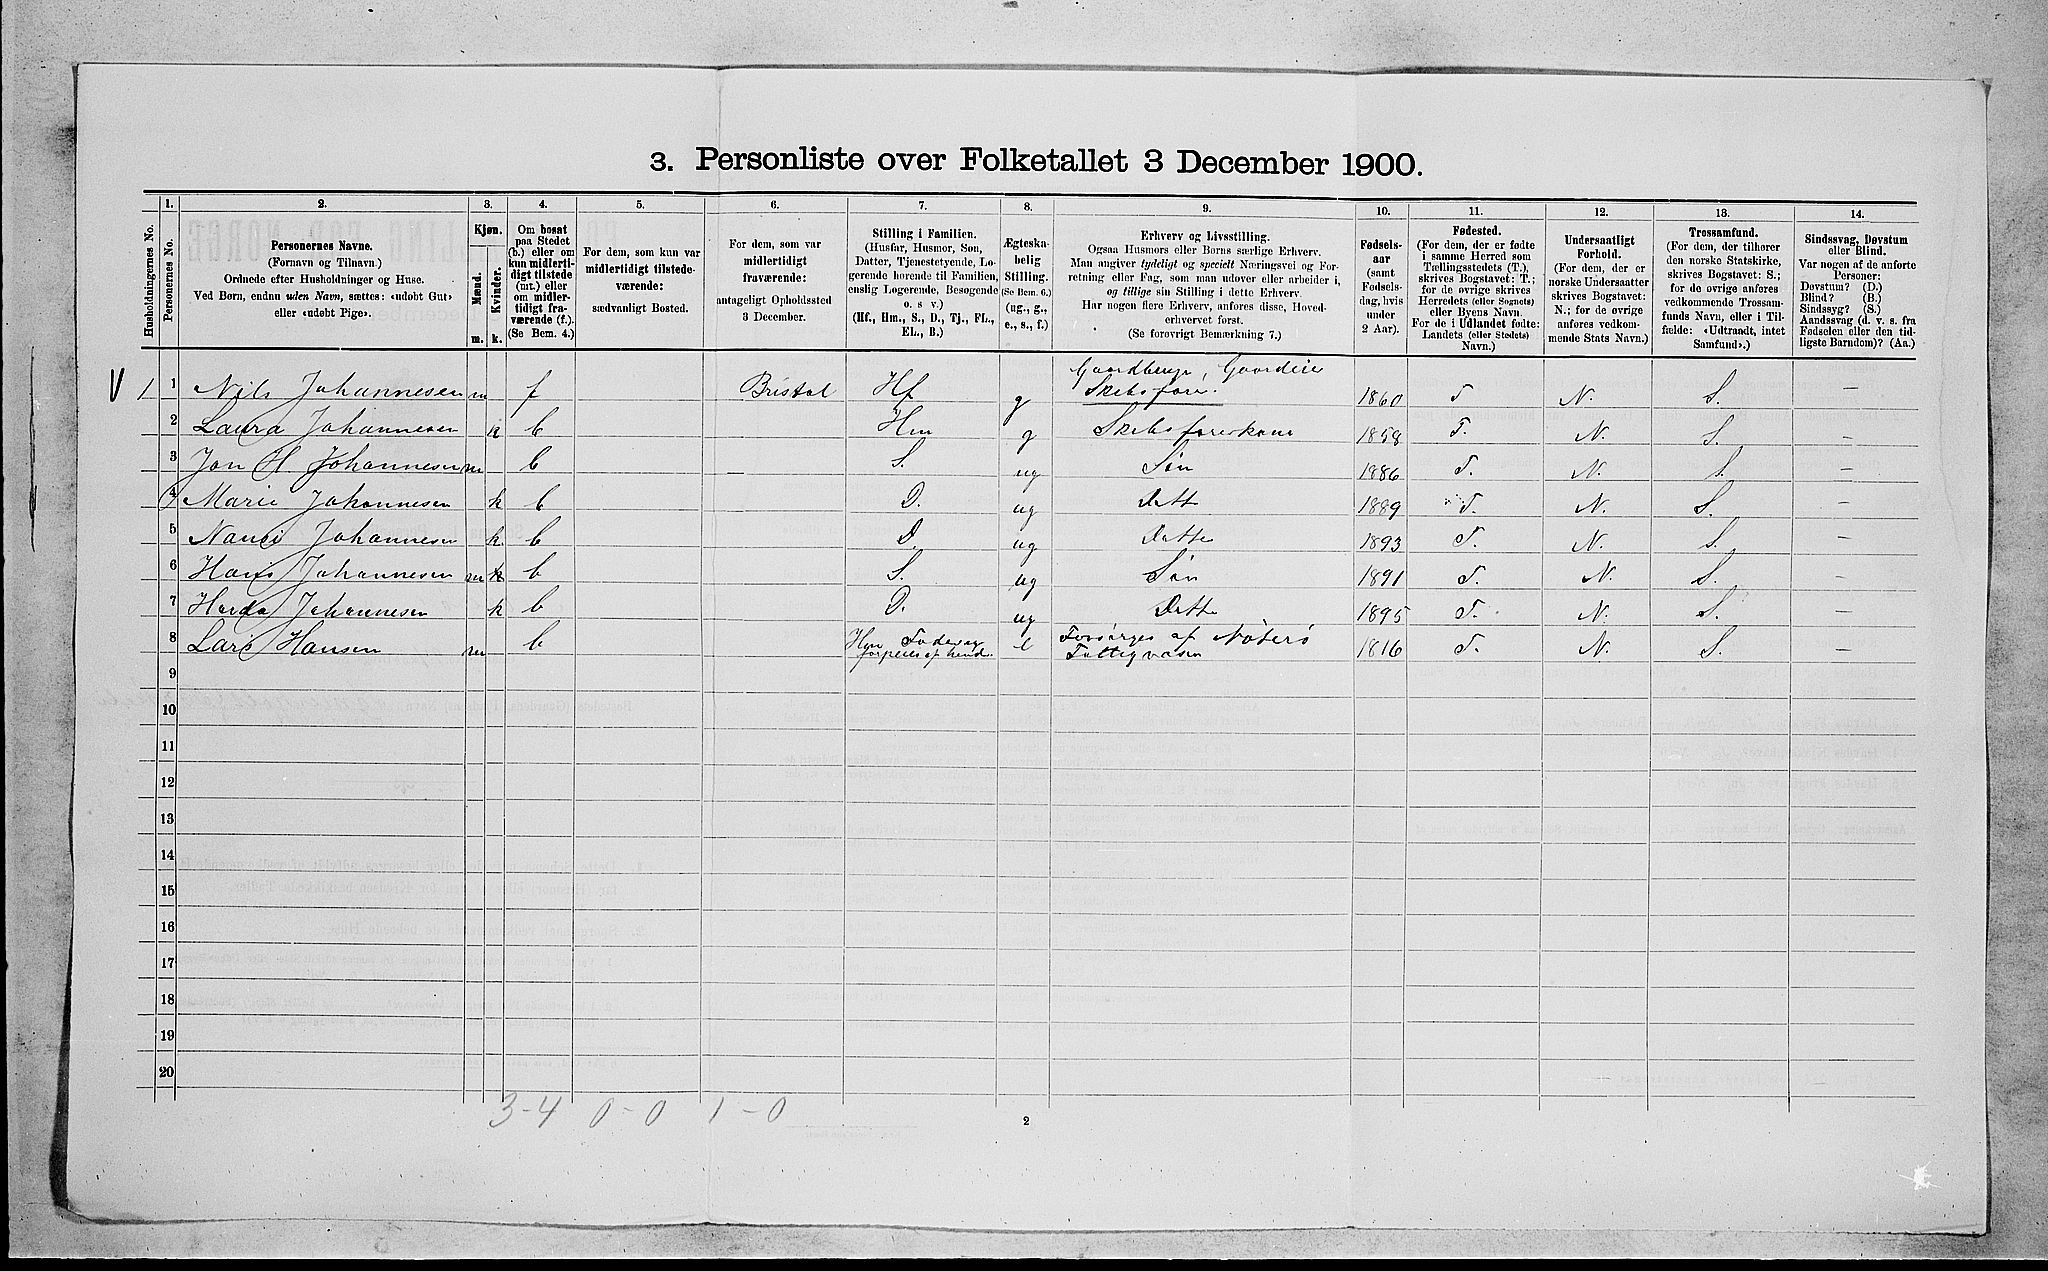 3. Personliste over Folketallet 3 December 1900.
Husholdningernes No.
1. Personernes No.
2. Personernes Navne. (Fornavn og Tilnavn.) Ordnede efter Husholdninger og Huse. Ved Børn, endnu uden Navn, sættes: «udøbt Gut» eller «udøbt Pige».
3. Kjøn. Mænd. m. Kvinder. k.
4. Om bosat paa Stedet (b.) eller om kun midlertidigt tilstede (mt.) eller om midlertidigt fraværende (f.). (Se Bem. 4.)
5. For dem, som kun var midlertidigt tilstedeværende: sædvanligt Bosted.
6. For dem, som var midlertidigt fraværende: antageligt Opholdssted 3 December.
7. Stilling i Familien. (Husfar, Husmor, Søn, Datter, Tjenestetyende, Logerende hørende til Familien, enslig Logerende, Besøgende o. s v.) (Hf., Hm., S., D., Tj., FL., EL., B.)
8. Ægteskabelig Stilling. (Se Bem. 6.) (ug., g., e., s., f.)
9. Erhverv og Livsstilling. Ogsaa Husmors eller Børns særlige Erhverv. Man angiver tydeligt og specielt Næringsvei og Forretning eller Fag, som man udøver eller arbeider i, og tillige sin Stilling i dette Erhverv. Har nogen flere Erhverv, anføres disse, Hovederhvervet først. (Se forøvrigt Bemærkning 7.)
10. Fødselsaar (samt Fødselsdag, hvis under 2 Aar).
11. Fødested. (For dem, der er fødte i samme Herred som Tællingsstedets (T.), skrives Bogstavet: T.; for de øvrige skrives Herredets (eller Sognets) eller Byens Navn. For de i Udlandet fødte: Landets (eller Stedets) Navn.)
12. Undersaatligt Forhold. (For dem, der er norske Undersaatter skrives Bogstavet: N.; for de øvrige anføres vedkommende Stats Navn.)
13. Trossamfund. (For dem, der tilhører den norske Statskirke, skrives Bogstavet: S.; for de øvrige anføres vedkommende Trossamfunds Navn, eller i Tilfælde: «Udtraadt, intet Samfund».)
14. Sindssvag, Døvstum eller Blind. Var nogen af de anførte Personer: Døvstum? (D.) Blind? (B.) Sindssyg? (S.) Aandssvag (d. v. s. fra Fødselen eller den tidligste Barndom)? (Aa.)
V 1 1 Nils Johannesen m f Bristol Hf g Gaardbruger, Gaardeier Skibsfører. 1860 T N. S. —
2 Laura Johannesen k b Hm g Skibsførerkone 1858 T. N. S. —
3 Jon H Johannesen m b S. ug Søn 1886 T. N. S. —
4 Marie Johannesen k b D. ug Datt 1889 T. N. S. —
5 Nanci Johannesen k. b D. ug Datte 1893 T. N. S. —
6 Hans Johannesen m k b S. ug Søn 1891 T. N. S. —
7 Johannesen k b D. ug Datte 1895 T. N. S. —
8 Lars Hansen m b Hm Fader og af hende. e Forsørges af Nøterø Fattigvæsen 1816 T. N. S. —
9
10
11
12
13
14
15
16
17
18
19
20
3-4 0-0 1-0
2